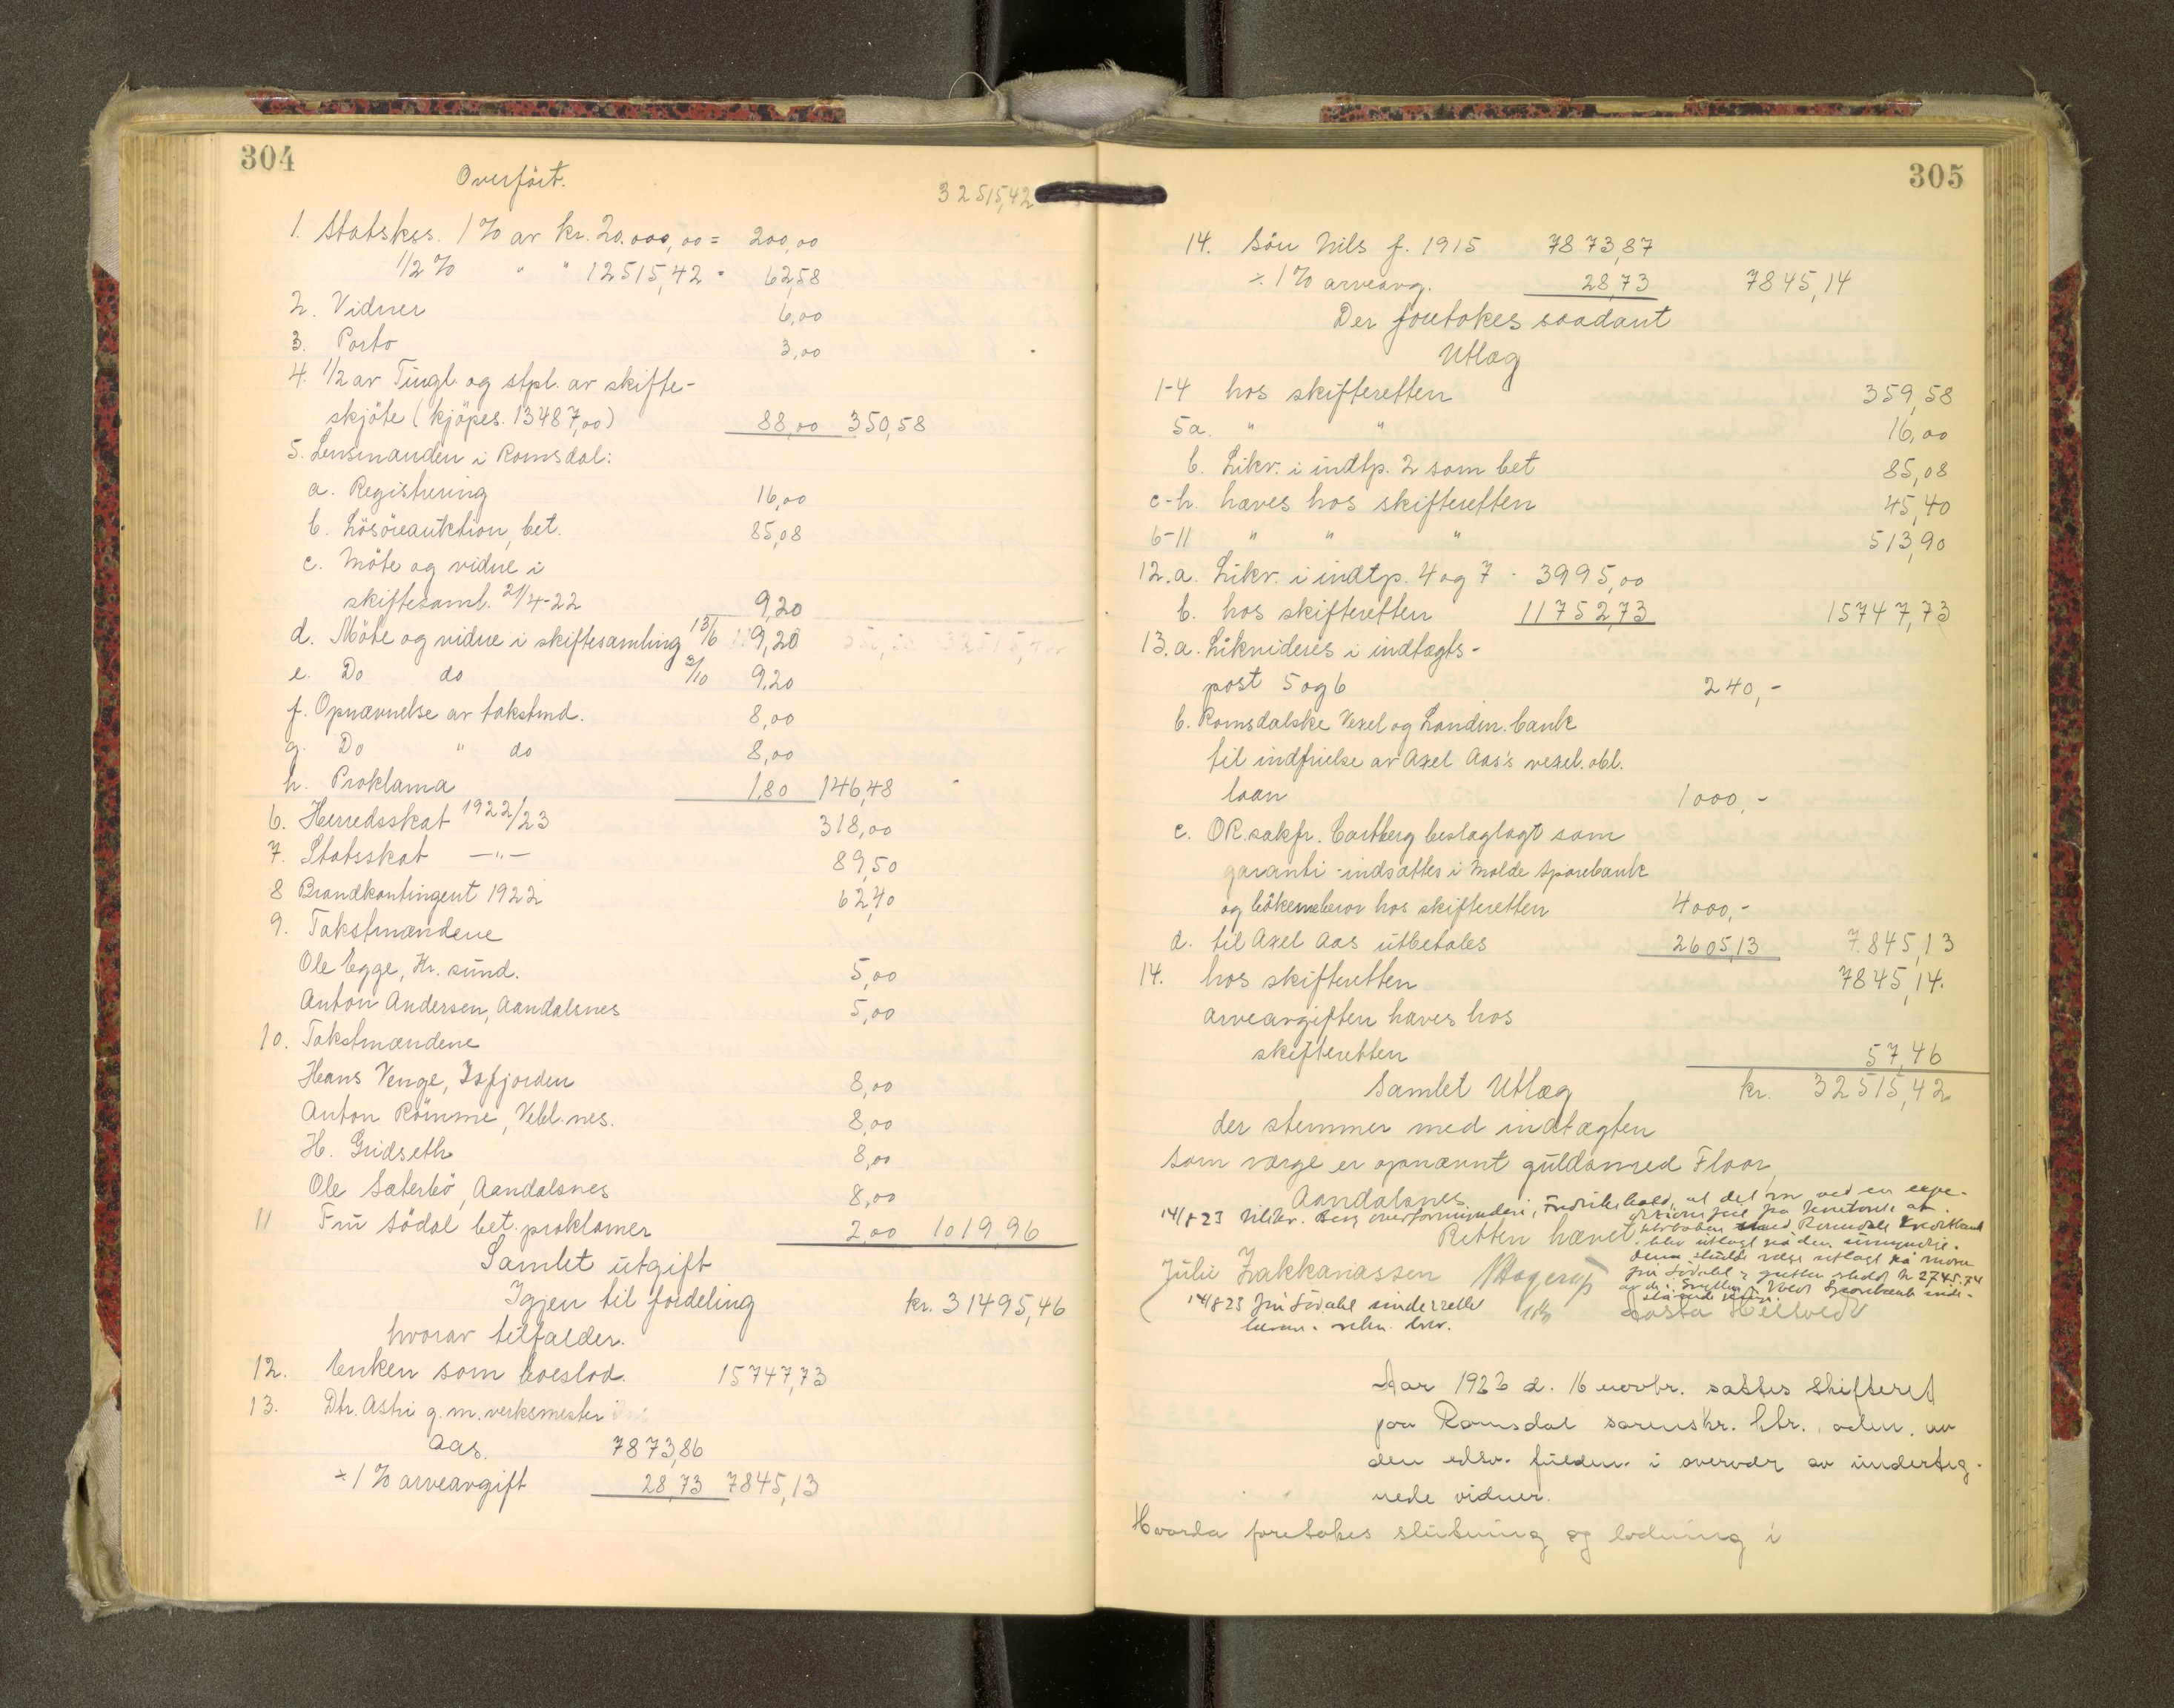 304
Overført.
32515,42
1. Statskas. 1% av kr. 20.000,00 = 200,00
1/2 % " " 12515,42 - 62,58
2. Vidner 6,00
3. Porto 3,00
4. 1/2 av Tingl. og stpl. av skifte-
skjøte (kjøpes. 13487,00) 88,00 350,58
5. Lensmanden i Romsdal:
a. Registrering 16,00
b. Løsøreauktion, bet. 85,08
c. Møte og vidne i
skiftesaml. 21/4-22 9,20
d. Møte og vidne i skiftesamling 13/6 9,20
e. Do do 3/10 9,20
f. Opnævnelse av takstmd. 8,00
g. Do " do 8,00
h. Proklama 1,80 146,48
6. Herredsskat 1922/23 318,00
7. Statsskat —"— 89,50
8 Brandkontingent 1922 62,40
9. Takstmændene
Ole Egge, Kr. sund. 5,00
Anton Andersen, Aandalsnes 5,00
10. Takstmændene
Hans Venge, Isfjorden 8,00
Anton Rømme, Vebl.nes. 8,00
H. Gridseth 8,00
Ole Sæterbø, Aandalsnes 8,00
11 Fru Sødal bet. proklamer 2,00 1019,96
Samlet utgift
Igjen til fordeling kr. 31495,46
hvorav tilfalder.
12. Enken som boeslod. 15747,73
13. Dtr. Astri g. m. verksmester
Aas. 7873,86
÷ 1% arveavgift 28,73 7845,13
305
14. Søn Nils f. 1915 7873,87
÷ 1% arveavg. 28,73 7845,14
Der foretokes saadant
Utlæg
1-4 hos skifteretten 359,58
5a. " " 16,00
b. Likv. i indtp. 2 som bet 85,08
c-h. haves hos skifteretten 45,40
6-11 " " " 513,90
12.a. Likv. i indtp. 4 og 7 - 3995,00
b. hos skifteretten 11752,73 15747,73
13.a. Likvideres i indtægts-
post 5 og 6 240,-
b. Romsdalske Vexel og Landm. bank
til indfrielse av Axel Aas's vexel.obl.
laan 1000,-
c. OR.sakfr. Castberg beslaglagt som
garanti - indsættes i Molde Sparebank
og bøkene beror hos skifteretten 4000,-
d. til Axel Aas utbetales 2605,13 7.845,13
14. hos skifteretten 7845,14.
arveavgiften haves hos
skifteretten 57,46
Samlet Utlæg kr. 32515,42
der stemmer med indtægten
Som værge er opnævnt guldsmed Floor,
Aandalsnes
14/8 23 overformynderi, Fredrikshald, at det ved en expe-
Retten hævet
Julie Zakkariassen Hagerup
14/8 23 Fru Sødahl underrettet
Aar 1923 d. 16 novbr. sattes Skifteret
paa Romsdal sorenskr. ktr. adm. av
den edsv. fuldm. i overvær av underteg-
nede vidner.
Hvorda foretokes slutning og lodning i